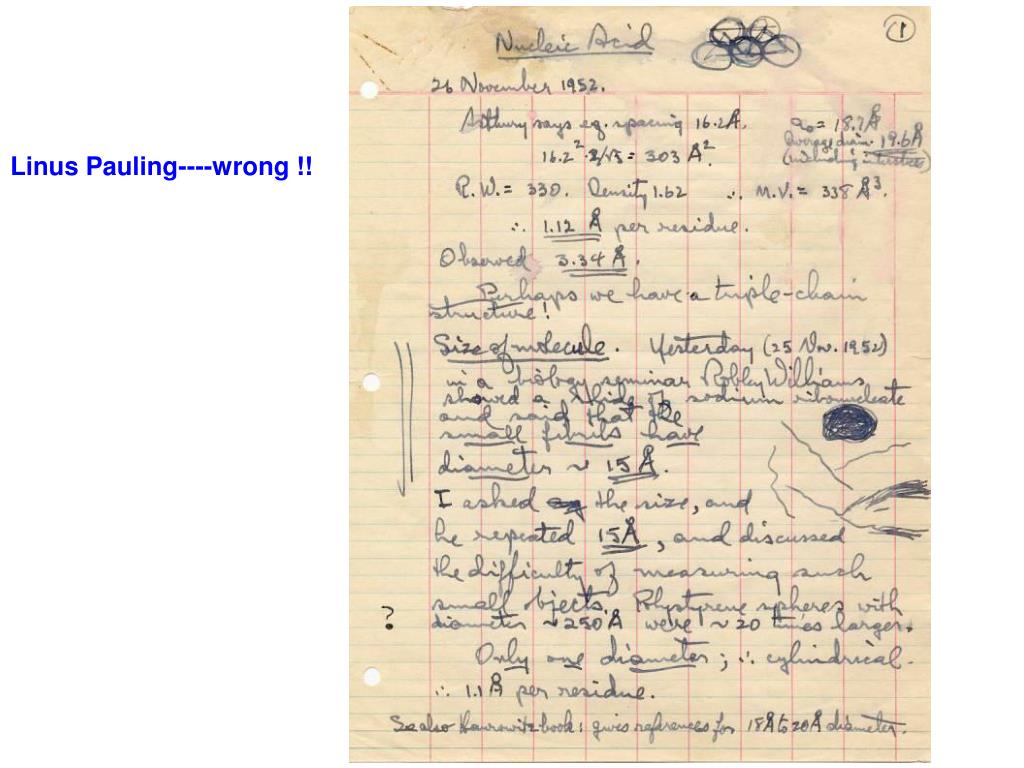 Linus Pauling----wrong !!
Nucleic Acid
1
26 November 1952.
Astbury says eq. spacing 16.2Å. a₀ = 18.7Å
Average diam. 19.6Å
(including interstices)
16.2² · 2/√3 = 303 Å².
R.W. = 330. Density 1.62 ∴ M.V. = 338 Å³.
∴ 1.12 Å per residue.
Observed 3.34 Å.
Perhaps we have a triple-chain
structure!
Size of molecule. Yesterday (25 Nov. 1952)
in a biology seminar Robley Williams
showed a slide of sodium ribonucleate
and said that the
small fibrils have
diameter ~ 15 Å.
I asked the size, and
he repeated 15Å, and discussed
the difficulty of measuring such
small objects. Polystyrene spheres with
? diameter ~ 250 Å were ~ 20 times larger.
Only one diameter; ∴ cylindrical.
∴ 1.1 Å per residue.
See also Haurowitz book: gives references for 18Å to 20Å diameter.